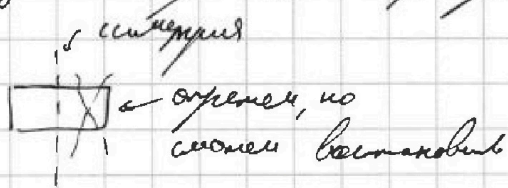 симметрия
отрежем, но
сможем восстановить